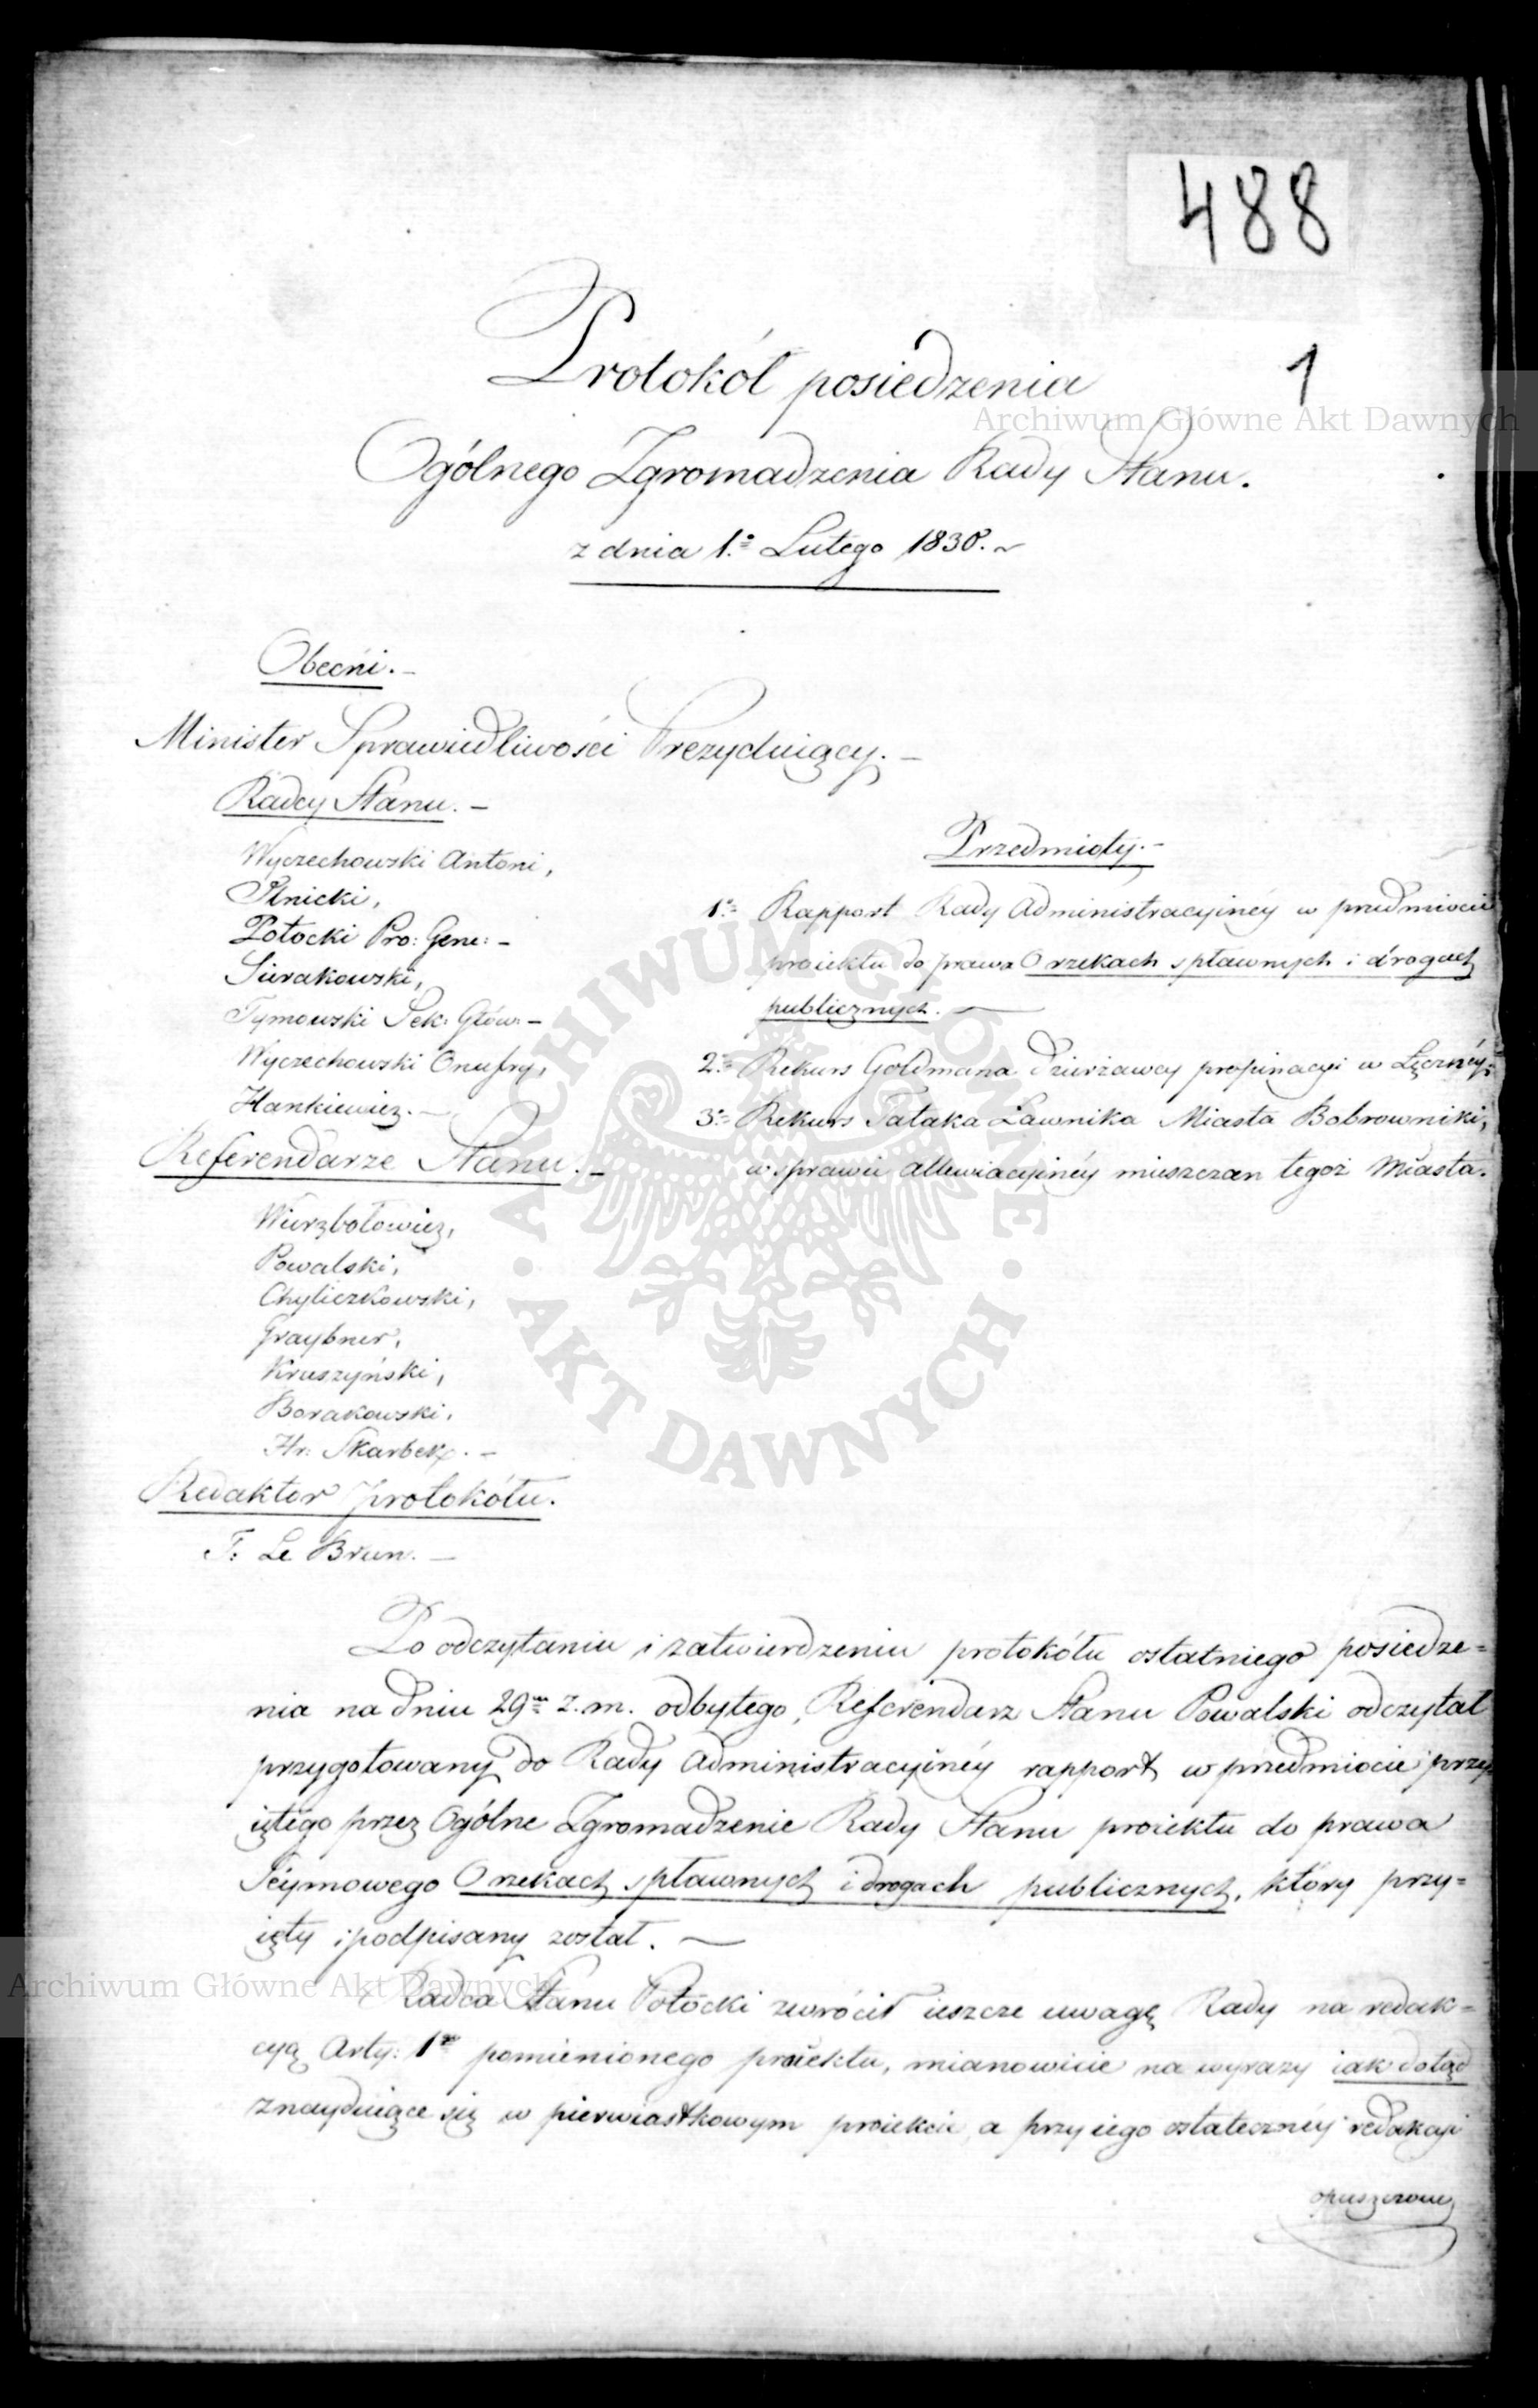 488
1
Protokół posiedzenia
Ogólnego Zgromadzenia Rady Stanu.
z dnia 1.o Lutego 1830. ~
Obecni. —
Minister Sprawiedliwości Prezyduiący. —
Radcy Stanu. —
Wyczechowski Antoni,
Potocki Pro: Gene: —
Sierakowski,
Tymowski Sek: Głów: —
Wyczechowski Onufry,
Hankiewicz. —
Referendarze Stanu. —
Wierzbołowicz,
Powalski,
Chyliczkowski,
Graybner,
Kruszyński,
Borakowski,
Hr: Skarbek. —
Redaktor protokółu.
T: Le Brun. —
Przedmioty. —
1.o Rapport Rady Administracyinéy w przedmiocie
proiektu do prawa O rzekach spławnych i drogach
publicznych. —
2.o Rekurs Goldmana dzierżawcy propinacyi w Łęcznéy.
3.o Rekurs Tataka Ławnika Miasta Bobrowniki,
w sprawie allewiacyinéy mieszczan tegoż Miasta.
Po odczytaniu i zatwierdzeniu protokółu ostatniego posiedze=
nia na dniu 29m z. m. odbytego, Referendarz Stanu Powalski odczytał
przygotowany do Rady Administracyinéy rapport w przedmiocie przy
iętego przez Ogólne Zgromadzenie Rady Stanu proiektu do prawa
Seymowego O rzekach spławnych i drogach publicznych, który przy=
ięty i podpisany został. —
Radca Stanu Potocki zwrócił ieszcze uwagę Rady na redak=
cyą Arty: 1o pomienionego proiektu, mianowicie na wyrazy iak dotąd
znayduiące się w pierwiastkowym proiekcie a przy iego ostatecznéy redakcyi
opuszczone,
Archiwum Główne Akt Dawnych
Archiwum Główne Akt Dawnych
ARCHIWUM GŁÓWNE • AKT DAWNYCH •